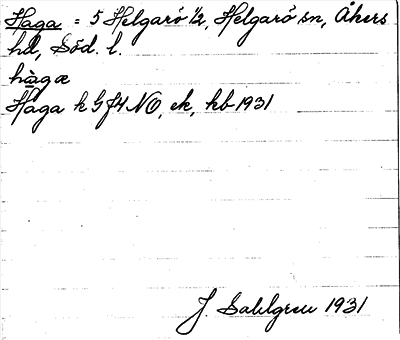 Haga = 5 Helgarö ½, Helgarö sn, Åkers
hd, Söd. l.
hàgæ
Haga k GJ4 NO, ek, hb 1931
J. Sahlgren 1931